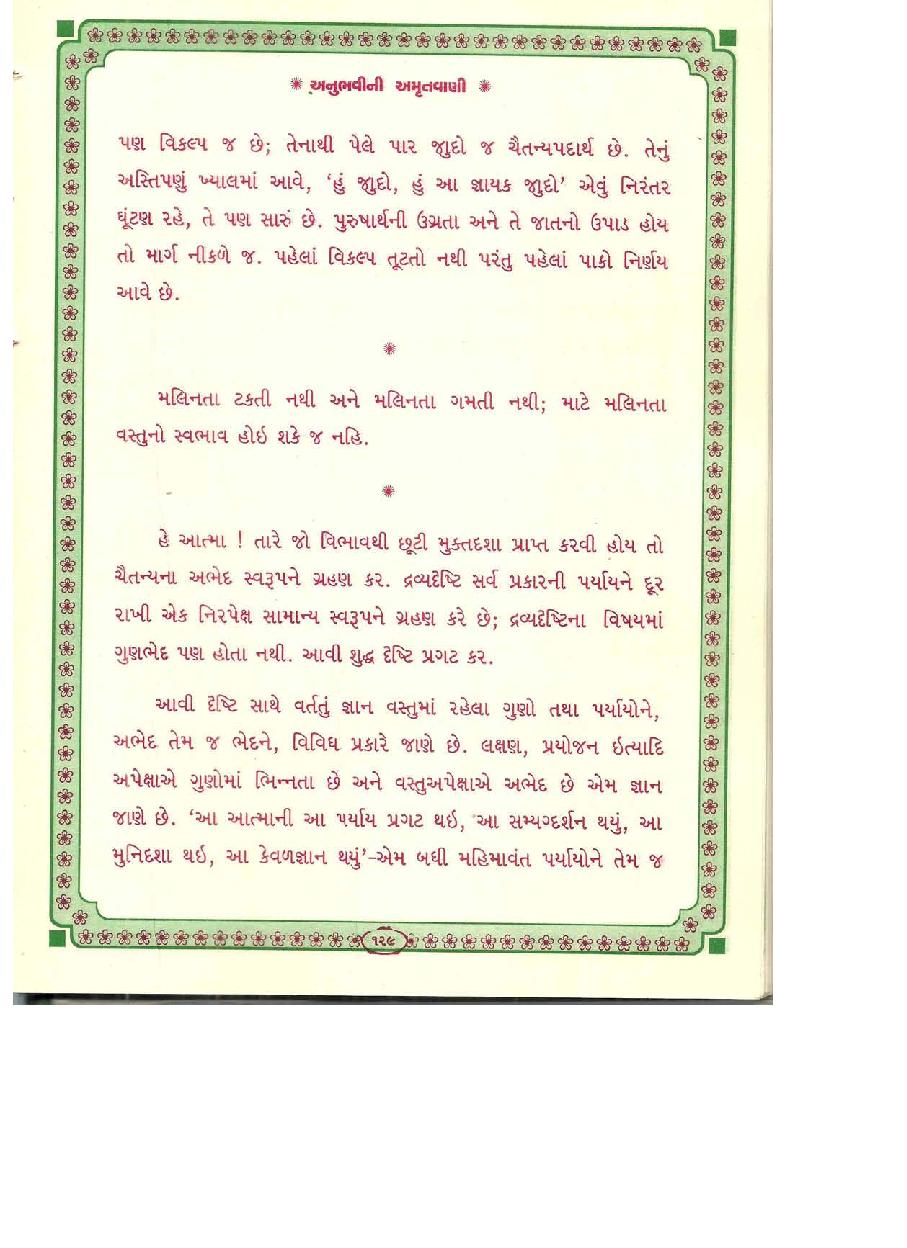 ✺ અનુભવીની અમૃતવાણી ✺
પણ વિકલ્પ જ છે; તેનાથી પેલે પાર જુદો જ ચૈતન્યપદાર્થ છે. તેનું
અસ્તિપણું ખ્યાલમાં આવે, ‘હું જુદો, હું આ જ્ઞાયક જુદો’ એવું નિરંતર
ઘૂંટણ રહે, તે પણ સારું છે. પુરુષાર્થની ઉગ્રતા અને તે જાતનો ઉપાડ હોય
તો માર્ગ નીકળે જ. પહેલાં વિકલ્પ તૂટતો નથી પરંતુ પહેલાં પાકો નિર્ણય
આવે છે.
✺
મલિનતા ટકતી નથી અને મલિનતા ગમતી નથી; માટે મલિનતા
વસ્તુનો સ્વભાવ હોઇ શકે જ નહિ.
✺
હે આત્મા ! તારે જો વિભાવથી છૂટી મુક્તદશા પ્રાપ્ત કરવી હોય તો
ચૈતન્યના અભેદ સ્વરૂપને ગ્રહણ કર. દ્રવ્યદૃષ્ટિ સર્વ પ્રકારની પર્યાયને દૂર
રાખી એક નિરપેક્ષ સામાન્ય સ્વરૂપને ગ્રહણ કરે છે; દ્રવ્યદૃષ્ટિના વિષયમાં
ગુણભેદ પણ હોતા નથી. આવી શુદ્ધ દૃષ્ટિ પ્રગટ કર.
આવી દૃષ્ટિ સાથે વર્તતું જ્ઞાન વસ્તુમાં રહેલા ગુણો તથા પર્યાયોને,
અભેદ તેમ જ ભેદને, વિવિધ પ્રકારે જાણે છે. લક્ષણ, પ્રયોજન ઇત્યાદિ
અપેક્ષાએ ગુણોમાં ભિન્નતા છે અને વસ્તુઅપેક્ષાએ અભેદ છે એમ જ્ઞાન
જાણે છે. ‘આ આત્માની આ પર્યાય પ્રગટ થઇ, આ સમ્યગ્દર્શન થયું, આ
મુનિદશા થઇ, આ કેવળજ્ઞાન થયું’-એમ બધી મહિમાવંત પર્યાયોને તેમ જ
૧૨૯